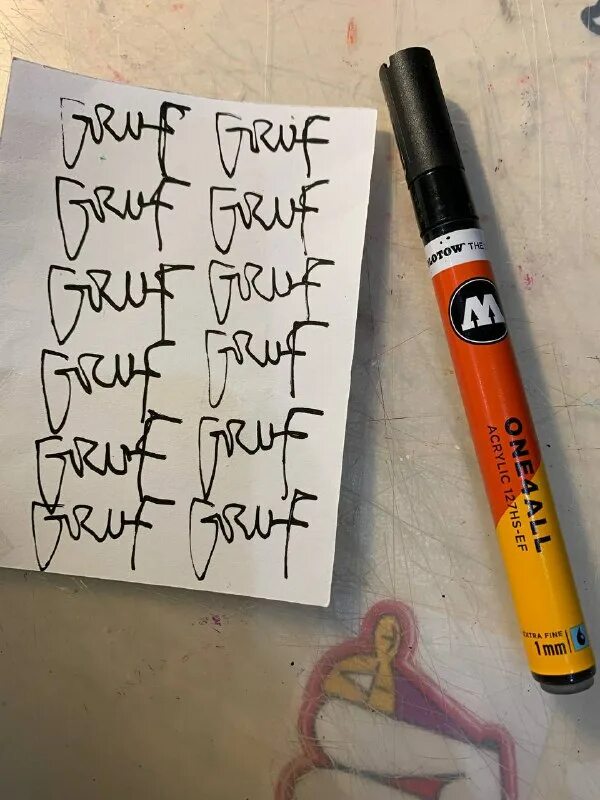 GRUF GRUF
GRUF GRUF
GRUF GRUF
GRUF GRUF
GRUF GRUF
GRUF GRUF
LOTOW™ THE
M
ONE4ALL
ACRYLIC 127HS-EF
EXTRA FINE
1mm 6